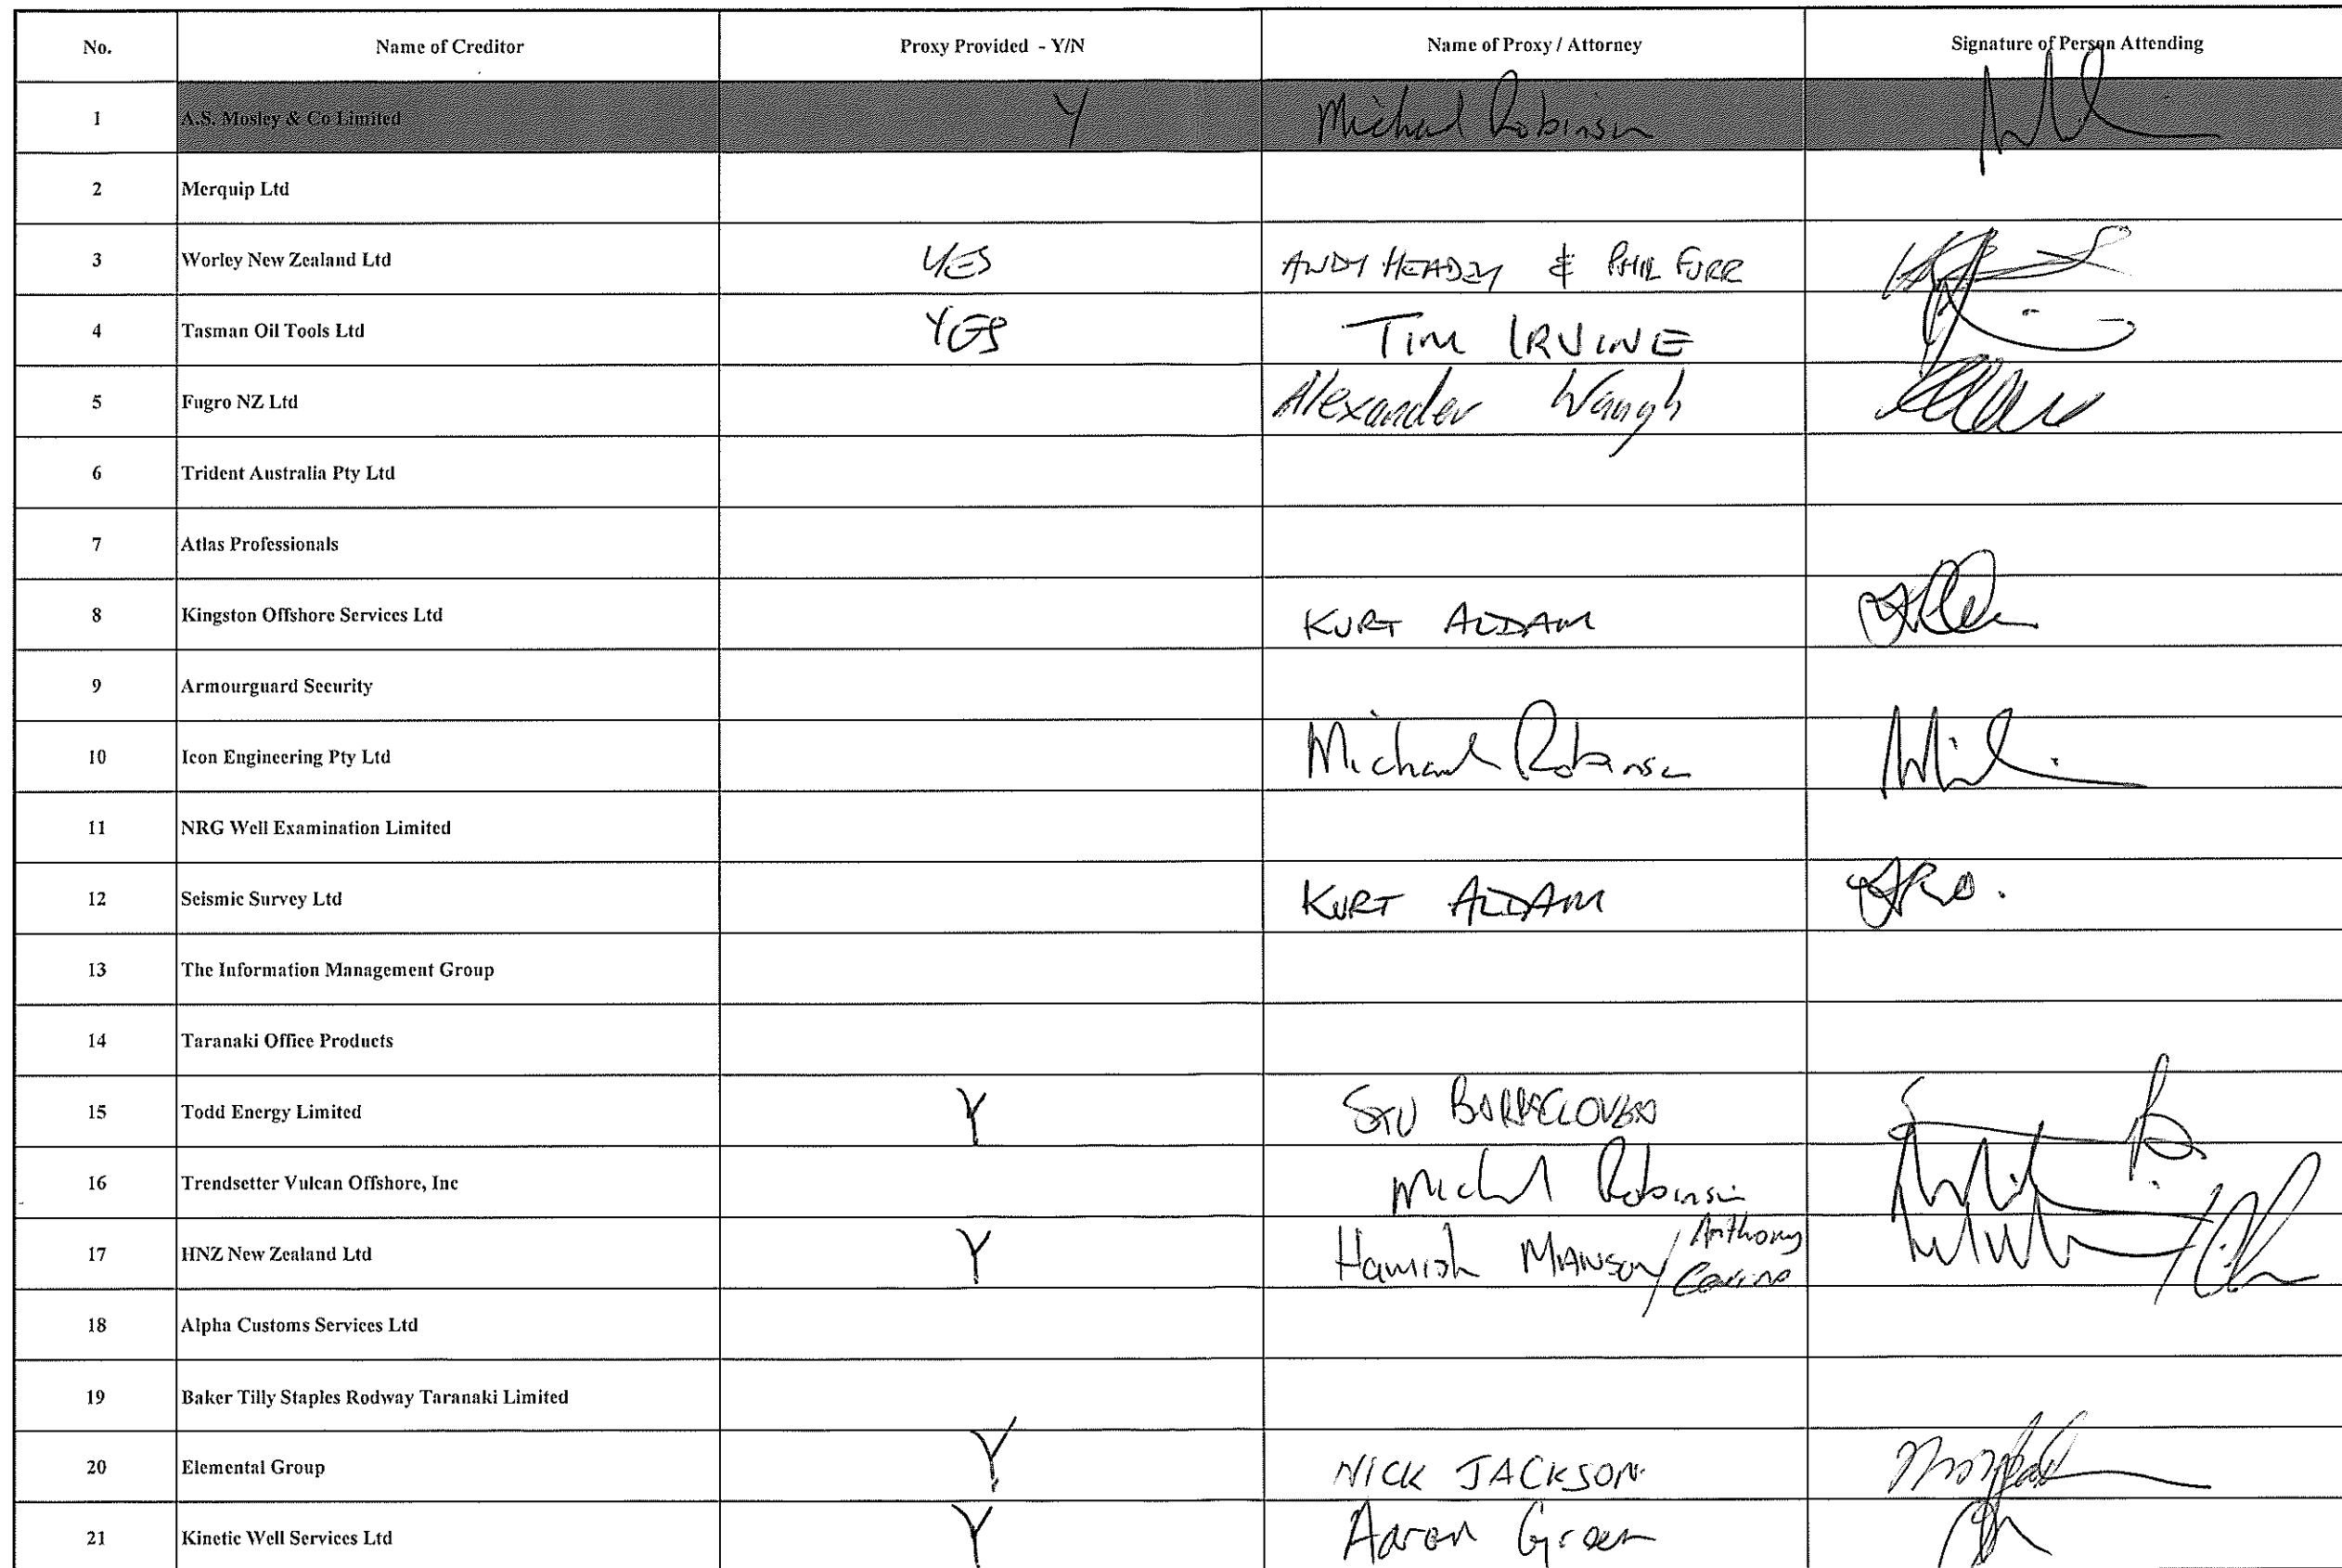 No. Name of Creditor Proxy Provided - Y/N Name of Proxy / Attorney Signature of Person Attending
1 A.S. Mosley & Co Limited Y Michael Robinson
2 Merquip Ltd
3 Worley New Zealand Ltd YES ANDY HEADEY & PHIL FURR
4 Tasman Oil Tools Ltd YES TIM IRVINE
5 Fugro NZ Ltd Alexander Waugh
6 Trident Australia Pty Ltd
7 Atlas Professionals
8 Kingston Offshore Services Ltd KURT ALDAM
9 Armourguard Security
10 Icon Engineering Pty Ltd Michael Robinson
11 NRG Well Examination Limited
12 Seismic Survey Ltd KURT ALDAM
13 The Information Management Group
14 Taranaki Office Products
15 Todd Energy Limited Y STU
16 Trendsetter Vulcan Offshore, Inc Michael Robinson
17 HNZ New Zealand Ltd Y Hamish MANSON / Anthony
18 Alpha Customs Services Ltd
19 Baker Tilly Staples Rodway Taranaki Limited
20 Elemental Group Y NICK JACKSON
21 Kinetic Well Services Ltd Y Aaron Green